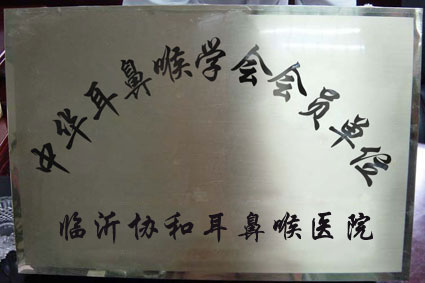 中华耳鼻喉学会会员单位
临沂协和耳鼻喉医院